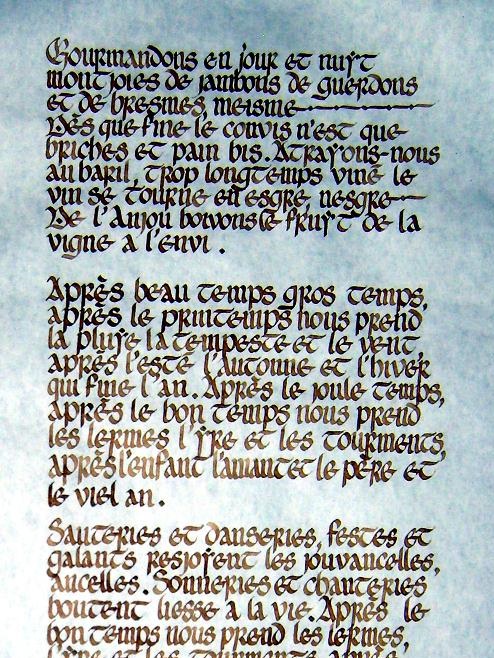 Gourmandons en jour et nuyt
montjoies de jambons de guerdons
et de bresmes meisme
Dès que fine le convis n'est que
briches et pain bis. Atrayons-nous
au baril, trop longtemps vine le
vin se tourne en esgre nesgre
De l'Anjou boivons le fruyt de la
vigne a l'envi.
Après beau temps gros temps,
après le printemps nous prend
la pluye la tempeste et le vent
après l'esté l'Automne et l'hiver
qui fine l'an. Après le joule temps,
après le bon temps nous prend
les lermes l'yre et les tourments,
après l'enfant l'amant et le père et
le viel an.
Sauteries et danseries, festes et
galants resjoyent les jouvancelles,
ancelles. Sonneries et chanteries
boutent liesse a la vie. Après le
bon temps nous prend les lermes,
l'yre et les tourments après